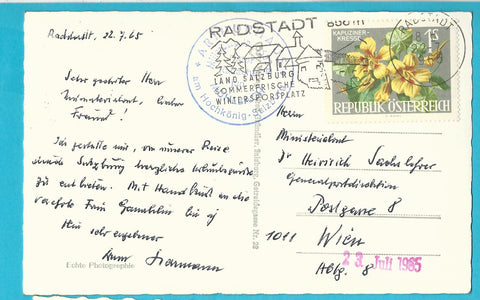 Radstadt, 22.7.65
RADSTADT
858 m
LAND SALZBURG
SOMMERFRISCHE
WINTERSPORTPLATZ
am Hochkönig
RADSTADT
KAPUZINER-
KRESSE
1S
REPUBLIK ÖSTERREICH
Sehr geehrter Herr
Ministerialrat, lieber
Freund!
Ich gestatte mir, von unserer Reise
durch Salzburg herzliche Urlaubsgrüße
zu entbieten. Mit Handkuß an die
verehrte Frau Gemahlin bin ich
Ihr sehr ergebener
Echte Photographie
Getreidegasse Nr. 22
Herrn
Ministerialrat
Dr Heinrich
Generalpostdirektion
Postgasse 8
1011 Wien
23. Juli 1965
Abtlg. 8